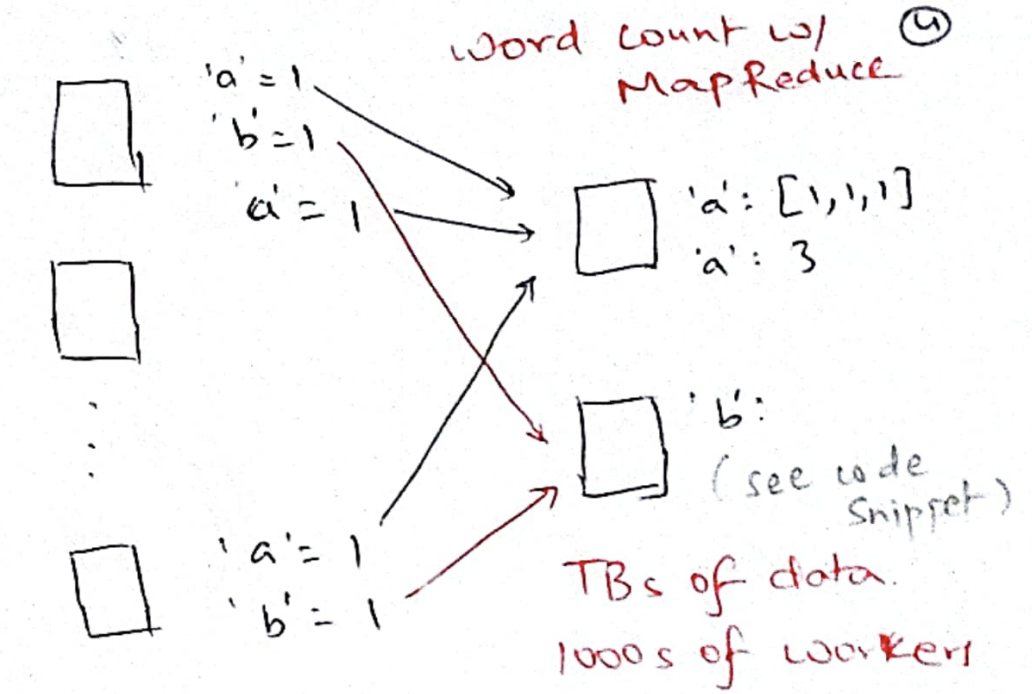 word count w/ ④
MapReduce
'a' = 1
'b' = 1
'a' = 1
'a': [1,1,1]
'a': 3
'b':
(see code
snippet)
'a' = 1
'b' = 1
TBs of data.
1000s of workers